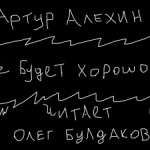 Артур Алехин
Будет хорошо
Читает
Олег Булдаков